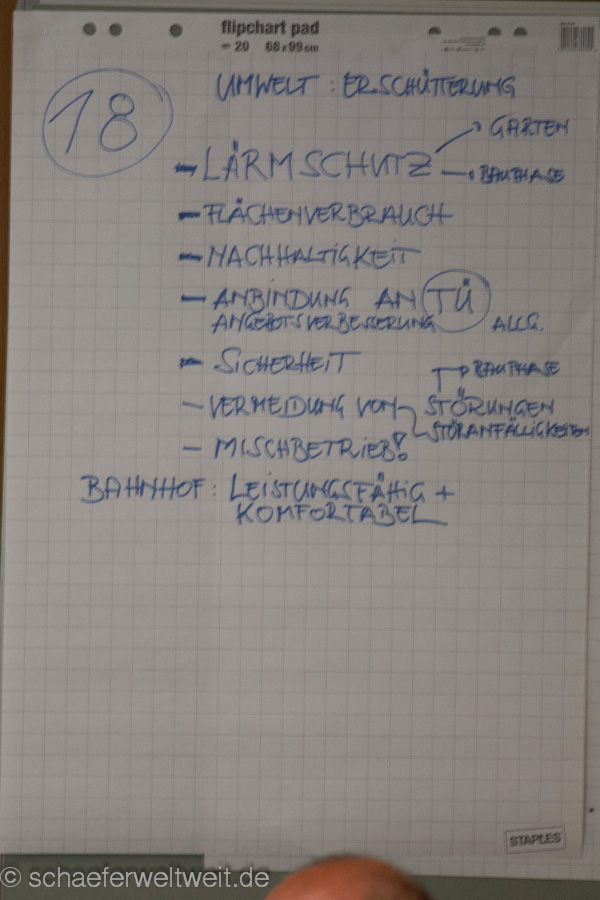 flipchart pad
20 68 x 99 cm
18
UMWELT : ERSCHÜTTERUNG
GARTEN
– LÄRMSCHUTZ
BAUPHASE
– FLÄCHENVERBRAUCH
– NACHHALTIGKEIT
– ANBINDUNG AN TÜ
ANGEBOTSVERBESSERUNG ALLG.
– SICHERHEIT
BAUPHASE
– VERMEIDUNG VON STÖRUNGEN
STÖRANFÄLLIGKEITEN
– MISCHBETRIEB!
BAHNHOF : LEISTUNGSFÄHIG +
KOMFORTABEL
STAPLES
© schaeferweltweit.de